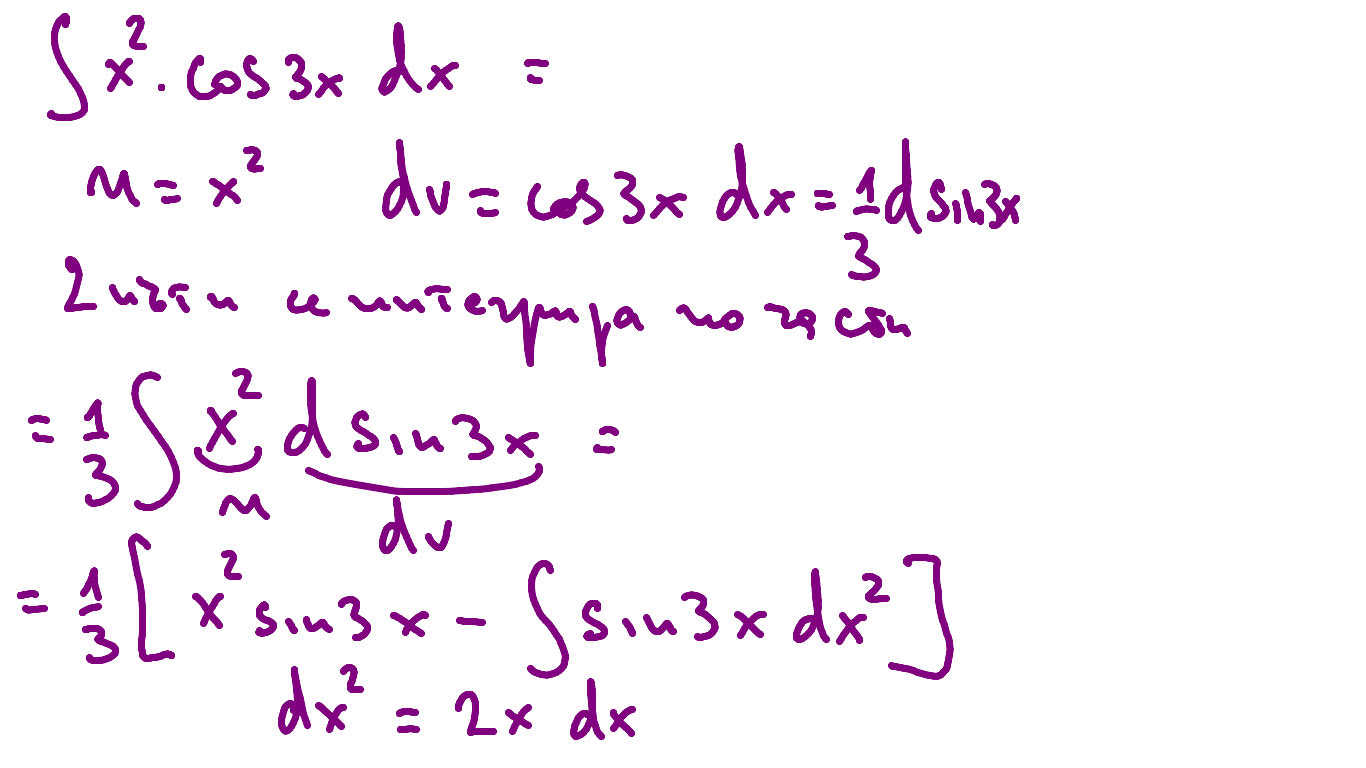 ∫ x² . cos 3x dx =
u = x² dv = cos 3x dx = 1/3 d sin 3x
2 пъти се интегрира по части
= 1/3 ∫ x² d sin 3x =
u dv
= 1/3 [ x² sin 3x - ∫ sin 3x dx² ]
dx² = 2x dx